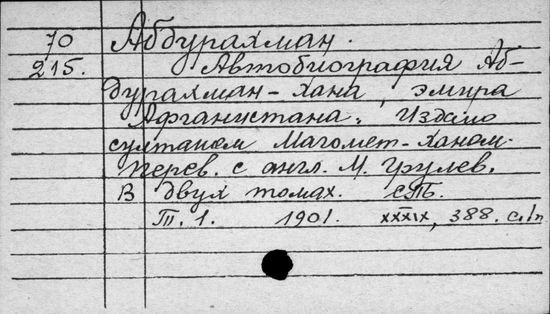 70 Абдурахман.
215. Автобиография Аб-
дурахман-хана, эмира
Афганистана. Издано
султаном Магомет-Ханом.
Перев. с англ. М. Грулев.
В двух томах. СПБ.
Т. 1. 1901. XXXIX, 388. с. 1п